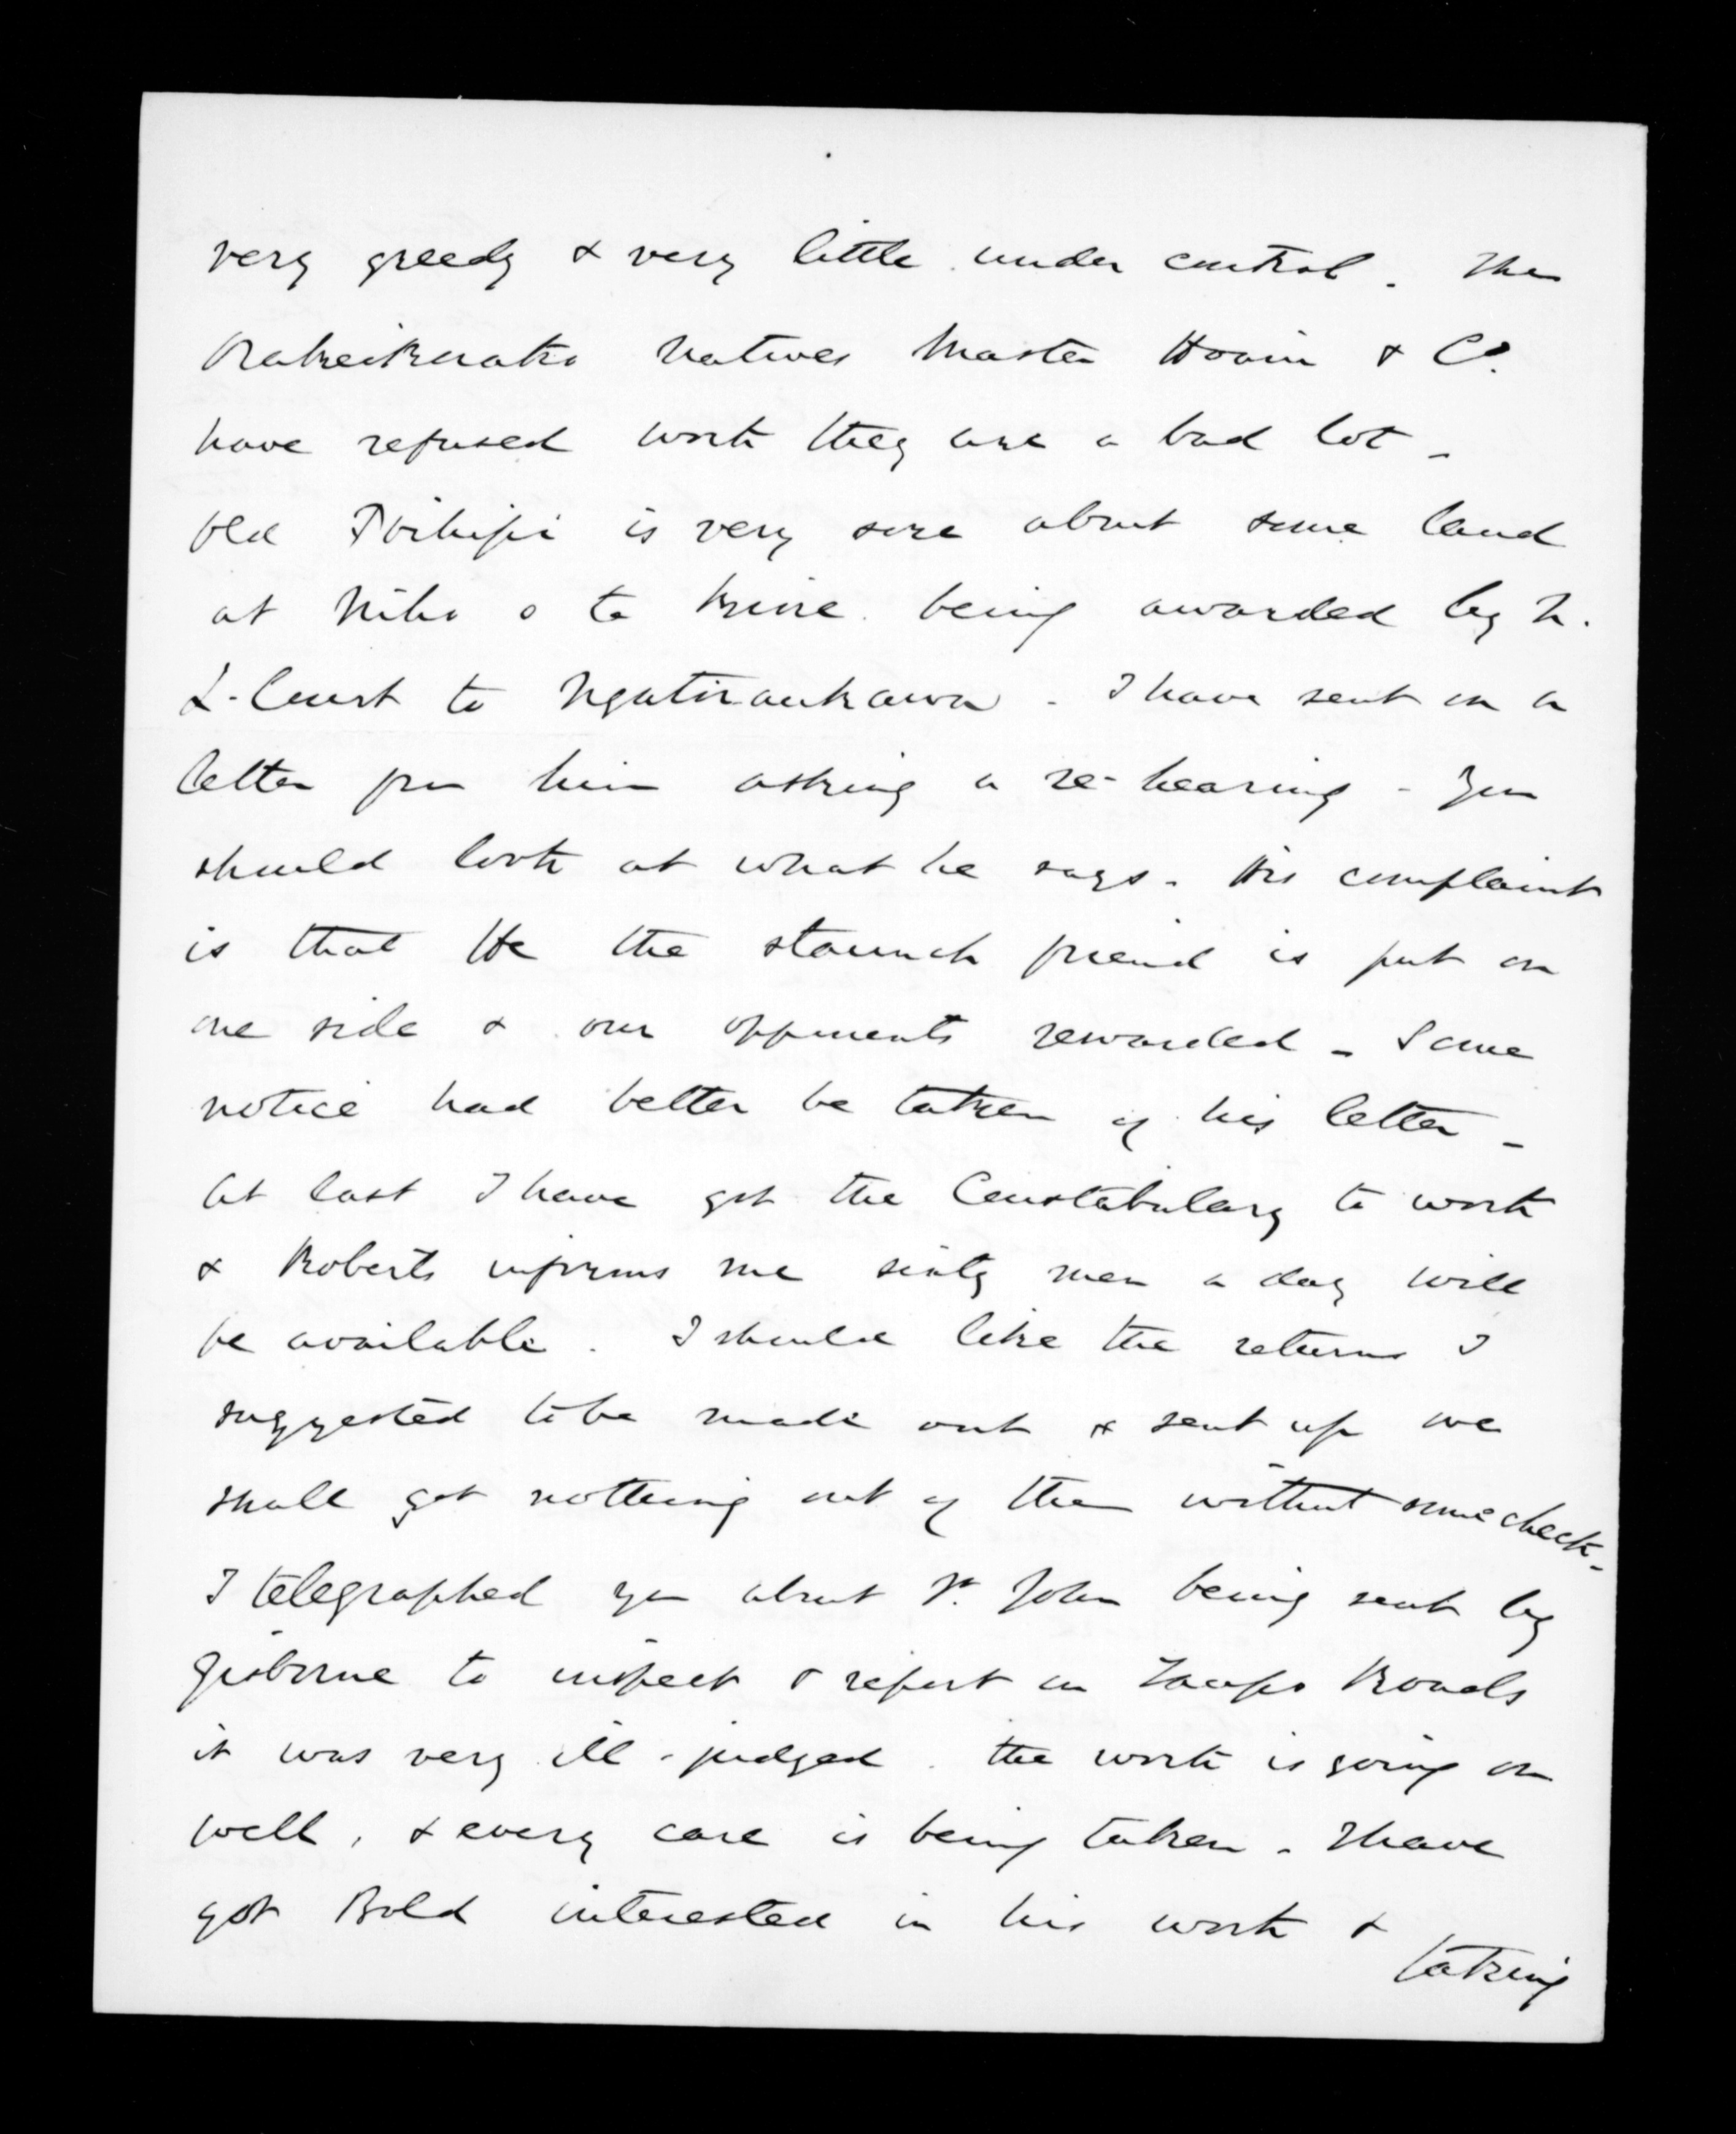 very greedy & very little under control. The
Orakeikorako Natives Master Hoani & Co.
have refused work they are a bad lot -
Old Poihipi is very sore about some land
at Niho o te kiore being awarded by N.
L. Court to Ngatiraukawa - I have sent in a
letter from him asking a re-hearing - You
should look at what he says. His complaint
is that He the staunch friend is put on
one side & our opponents rewarded - Some
notice had better be taken of his letter -
At last I have got the Constabulary to work
& Roberts informs me sixty men a day will
be available. I should like the returns I
suggested to be made out & sent up we
shall get nothing out of them without some check -
I telegraphed you about St. John being sent by
Gisborne to inspect & report on Taupo Roads
it was very ill-judged. the work is going on
well, & every care is being taken. I have
got Bold interested in his work &
taking